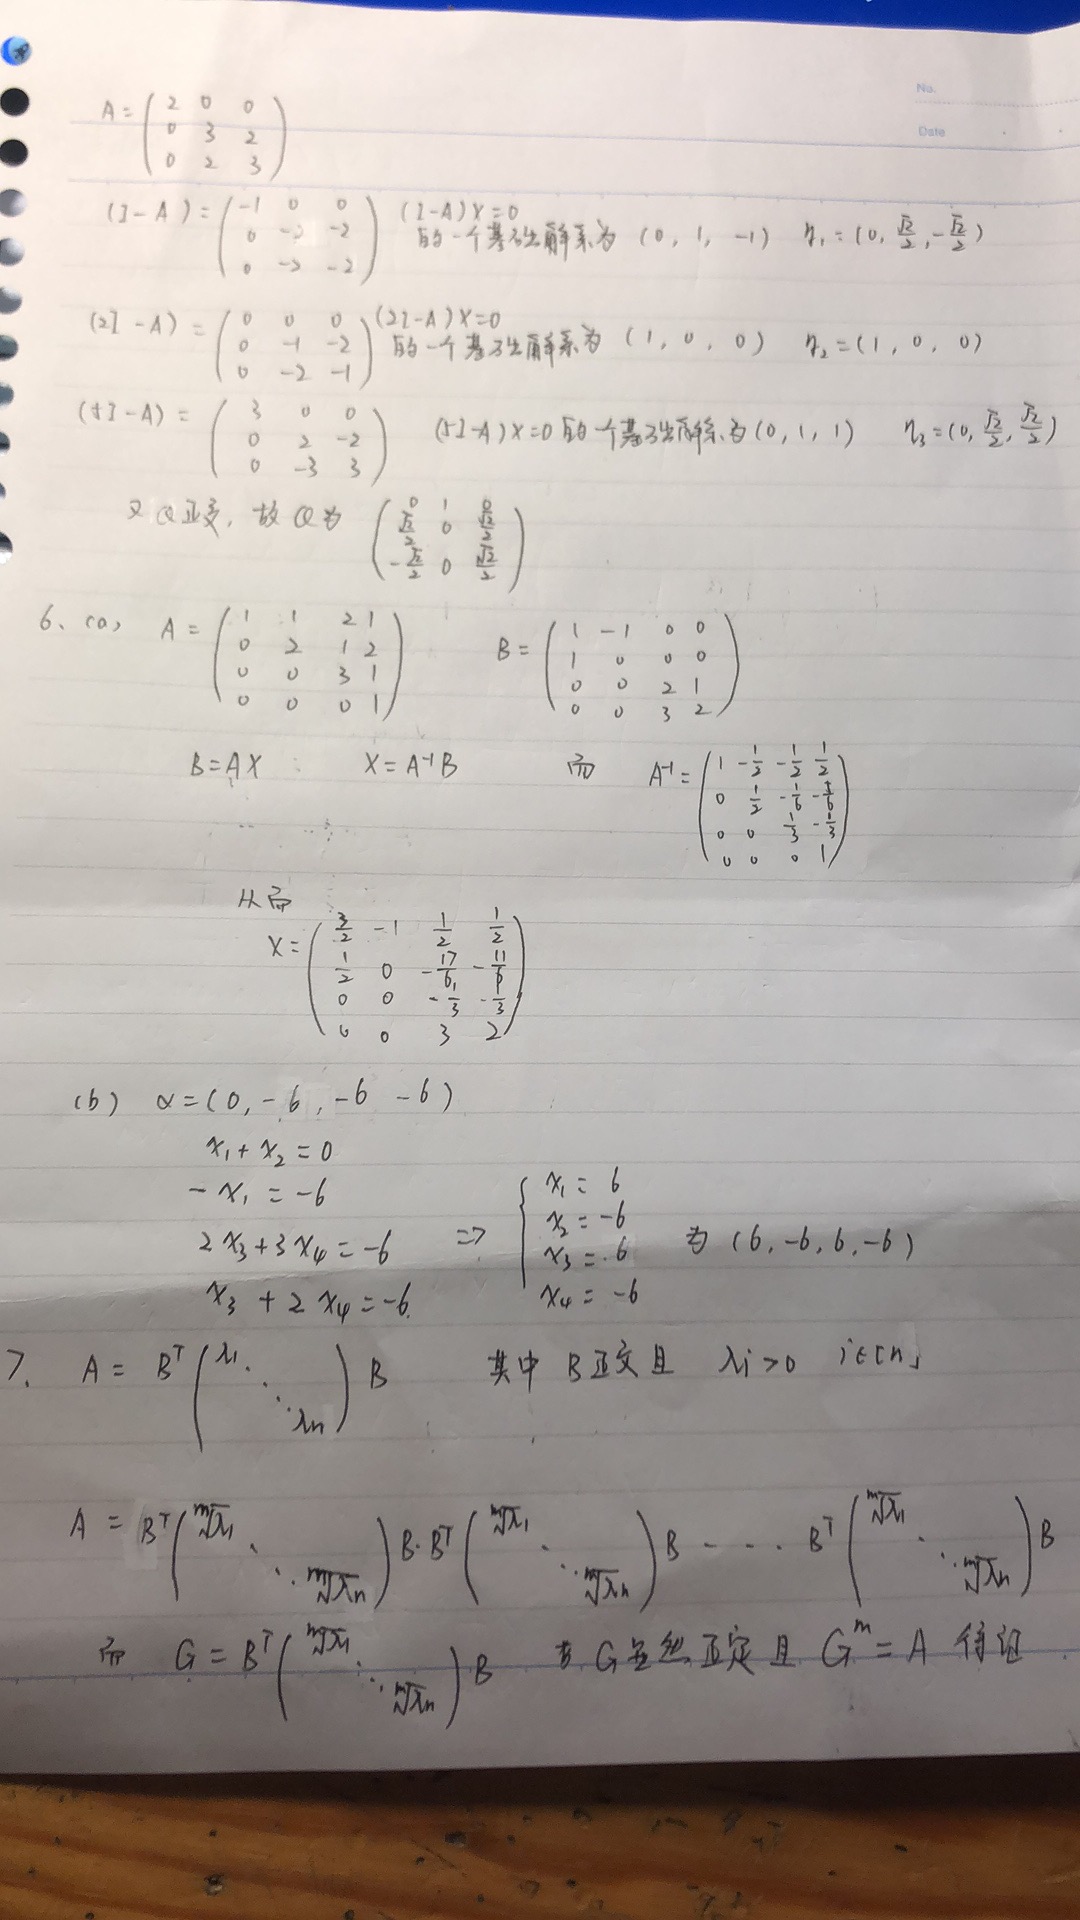 No.
Date
A = ( 2 0 0 ; 0 3 2 ; 0 2 3 )
(I-A) = ( -1 0 0 ; 0 -2 -2 ; 0 -2 -2 ) (I-A)X=0 的一个基础解系为 (0, 1, -1) η₁ = (0, √2/2, -√2/2)
(2I-A) = ( 0 0 0 ; 0 -1 -2 ; 0 -2 -1 ) (2I-A)X=0 的一个基础解系为 (1, 0, 0) η₂ = (1, 0, 0)
(5I-A) = ( 3 0 0 ; 0 2 -2 ; 0 -3 3 ) (5I-A)X=0 的一个基础解系为 (0, 1, 1) η₃ = (0, √2/2, √2/2)
又Q正交, 故Q为 ( 0 1 0 ; √2/2 0 √2/2 ; -√2/2 0 √2/2 )
6、(a) A = ( 1 1 2 1 ; 0 2 1 2 ; 0 0 3 1 ; 0 0 0 1 ) B = ( 1 -1 0 0 ; 1 0 0 0 ; 0 0 2 1 ; 0 0 3 2 )
B=AX X=A⁻¹B 而 A⁻¹ = ( 1 -1/2 -1/2 1/2 ; 0 1/2 -1/6 -5/6 ; 0 0 1/3 -1/3 ; 0 0 0 1 )
从而
X = ( 3/2 -1 1/2 1/2 ; 1/2 0 -17/6 -11/6 ; 0 0 -1/3 -1/3 ; 0 0 3 2 )
(b) α = (0, -6, -6 -6)
x₁ + x₂ = 0
-x₁ = -6
2x₃+3x₄ = -6
x₃ + 2x₄ = -6
⇒ { x₁ = 6
x₂ = -6
x₃ = 6
x₄ = -6
为 (6, -6, 6, -6)
7. A = Bᵀ ( λ₁ ⋱ λn ) B 其中 B正交且 λi > 0 i∈[n]
A = Bᵀ ( ᵐ√λ₁ ⋱ ᵐ√λn ) B·Bᵀ ( ᵐ√λ₁ ⋱ ᵐ√λn ) B - - - · Bᵀ ( ᵐ√λ₁ ⋱ ᵐ√λn ) B
而 G = Bᵀ ( ᵐ√λ₁ ⋱ ᵐ√λn ) B G显然正定且 Gᵐ = A 得证